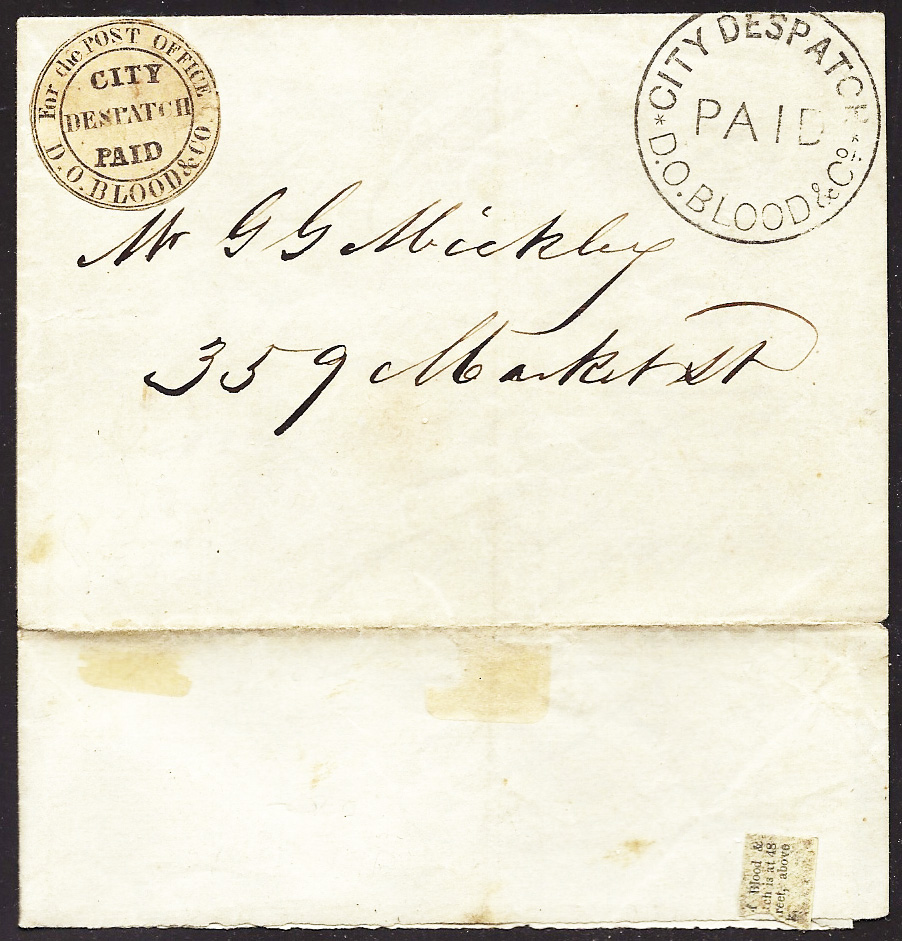 For the POST OFFICE
CITY
DESPATCH
PAID
D.O.BLOOD&CO
*CITY DESPATCH*
PAID
D.O.BLOOD&Co.
Mr G G Mickley
359 Market St
Blood &
ch is at 48
reet, above